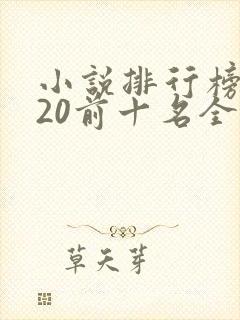 小說排行榜
20前十名全
草天芽